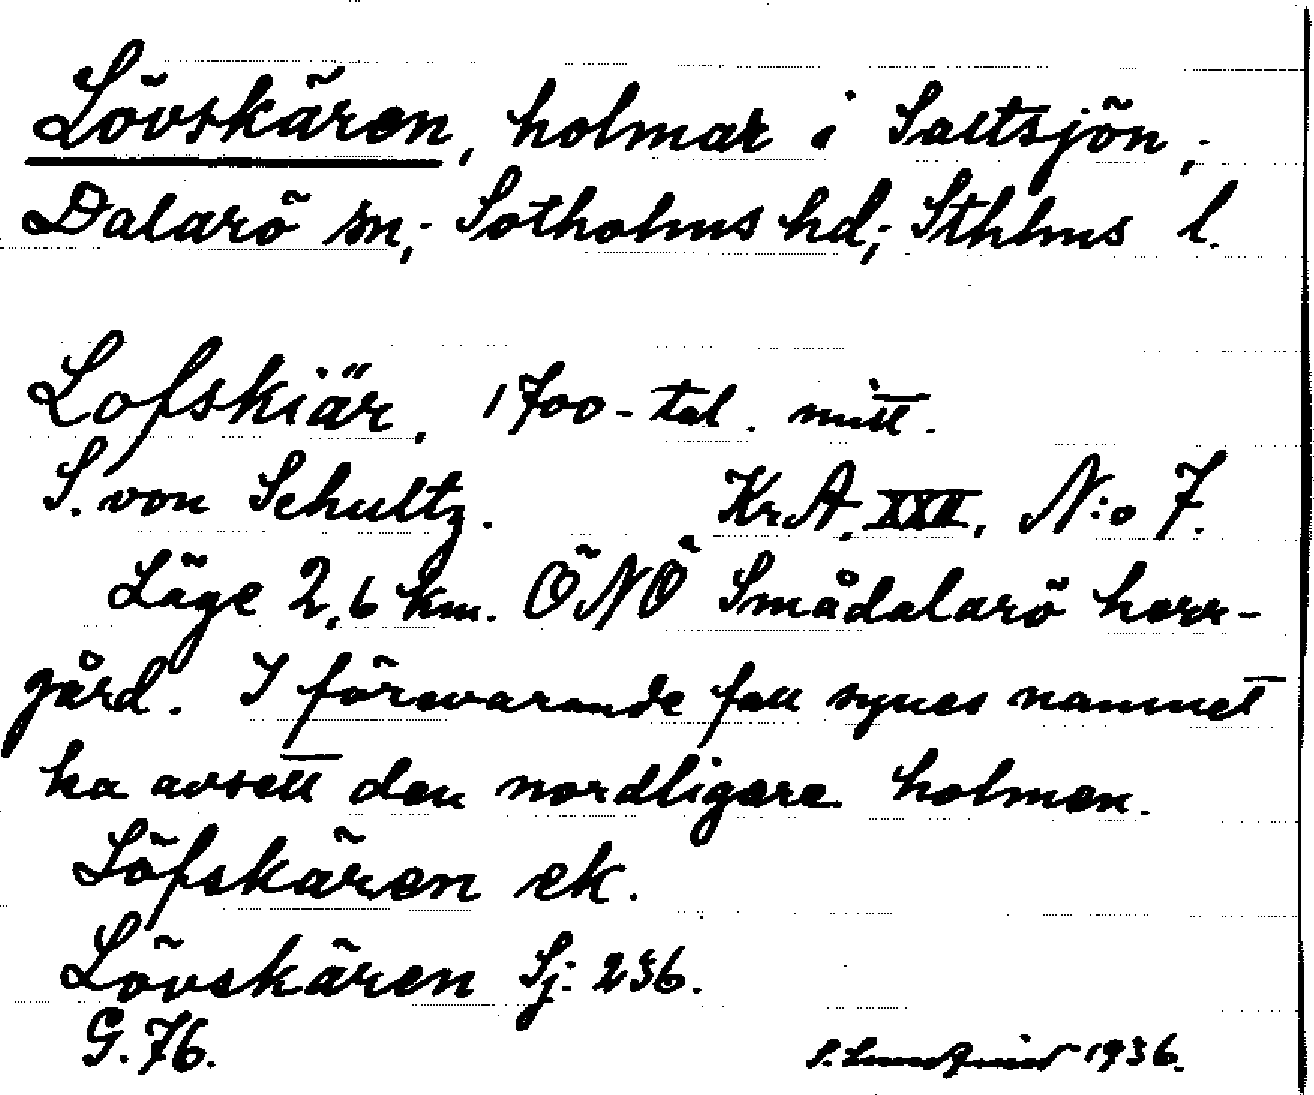 Lövskären, holmar i Saltsjön,
Dalarö sn, Sotholms hd, Sthlms l.
Lofskiär. 1700-tal. mitt.
S. von Schultz. Kr.A. XXII, N:o 7.
Läge 2,6 km. ÖNÖ Smådalarö herr-
gård. I förevarande fall synes namnet
ha avsett den nordligare holmen.
Löfskären ek.
Lövskären Sj: 236.
G. 76.
1936.